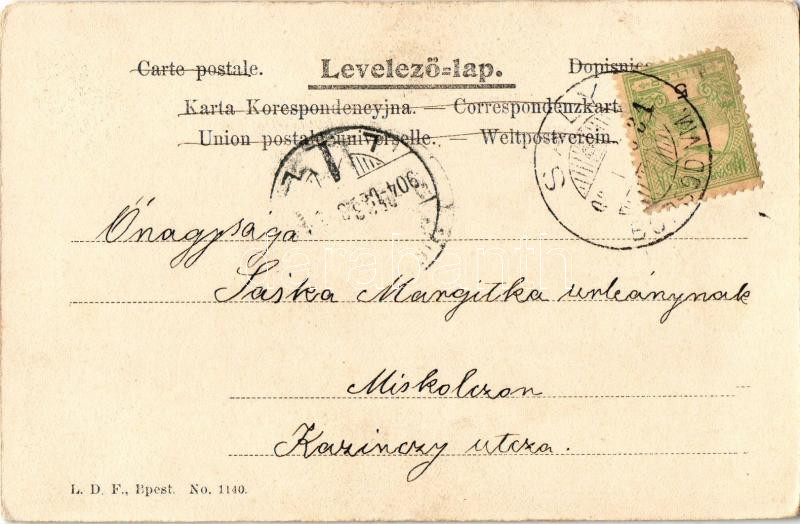 Carte postale. Levelező-lap. Dopisnica
Karta Korespondencyjna. — Correspondenzkarte
Union postale universelle. — Weltpostverein.
904
Őnagysága
Sáska Margitka urleánynak
Miskolczon
Kazinczy utcza.
L. D. F., Bpest. No. 1140.